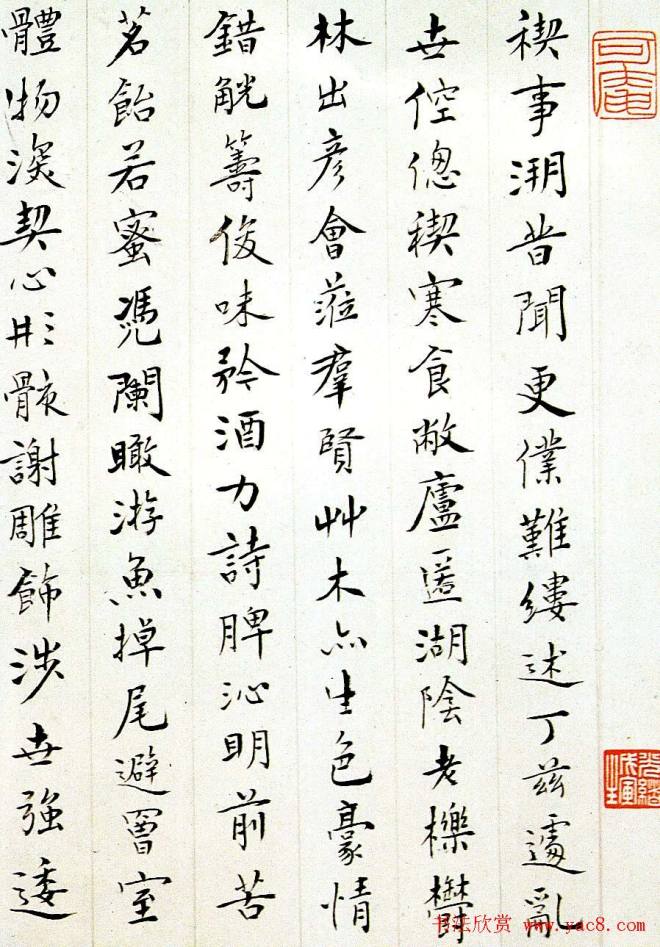 禊事溯昔聞更僕難縷述丁茲遽亂
世倥傯禊寒食敝廬邇湖陰老櫟鬱
林出彥會蒞羣賢艸木亦生色豪情
錯觥籌俊味矜酒力詩脾沁明前苦
茗飴若蜜凴闌瞰游魚掉尾避罾室
體物淡契心形骸謝雕飾涉世強逶
书法欣赏 www.yac8.com